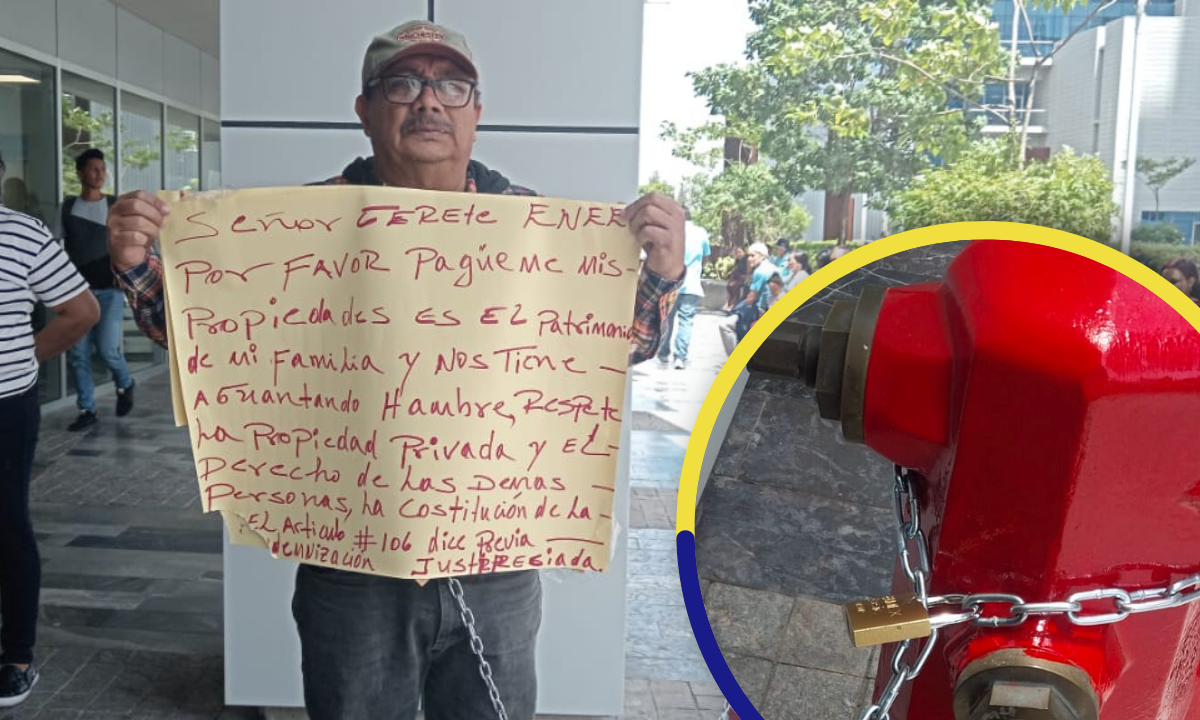 Señor GEREte ENEE
POR FAVOR PagüeMe Mis-
Propiedades ES EL Patrimonio
de Mi Familia y Nos Tiene -
AGuantando Hambre, Respete
La Propiedad Privada y EL-
Derecho de Las Demas -
Personas, La Costitución de La -
EL Articulo #106 dice Previa -
demnización JustPRESiada.